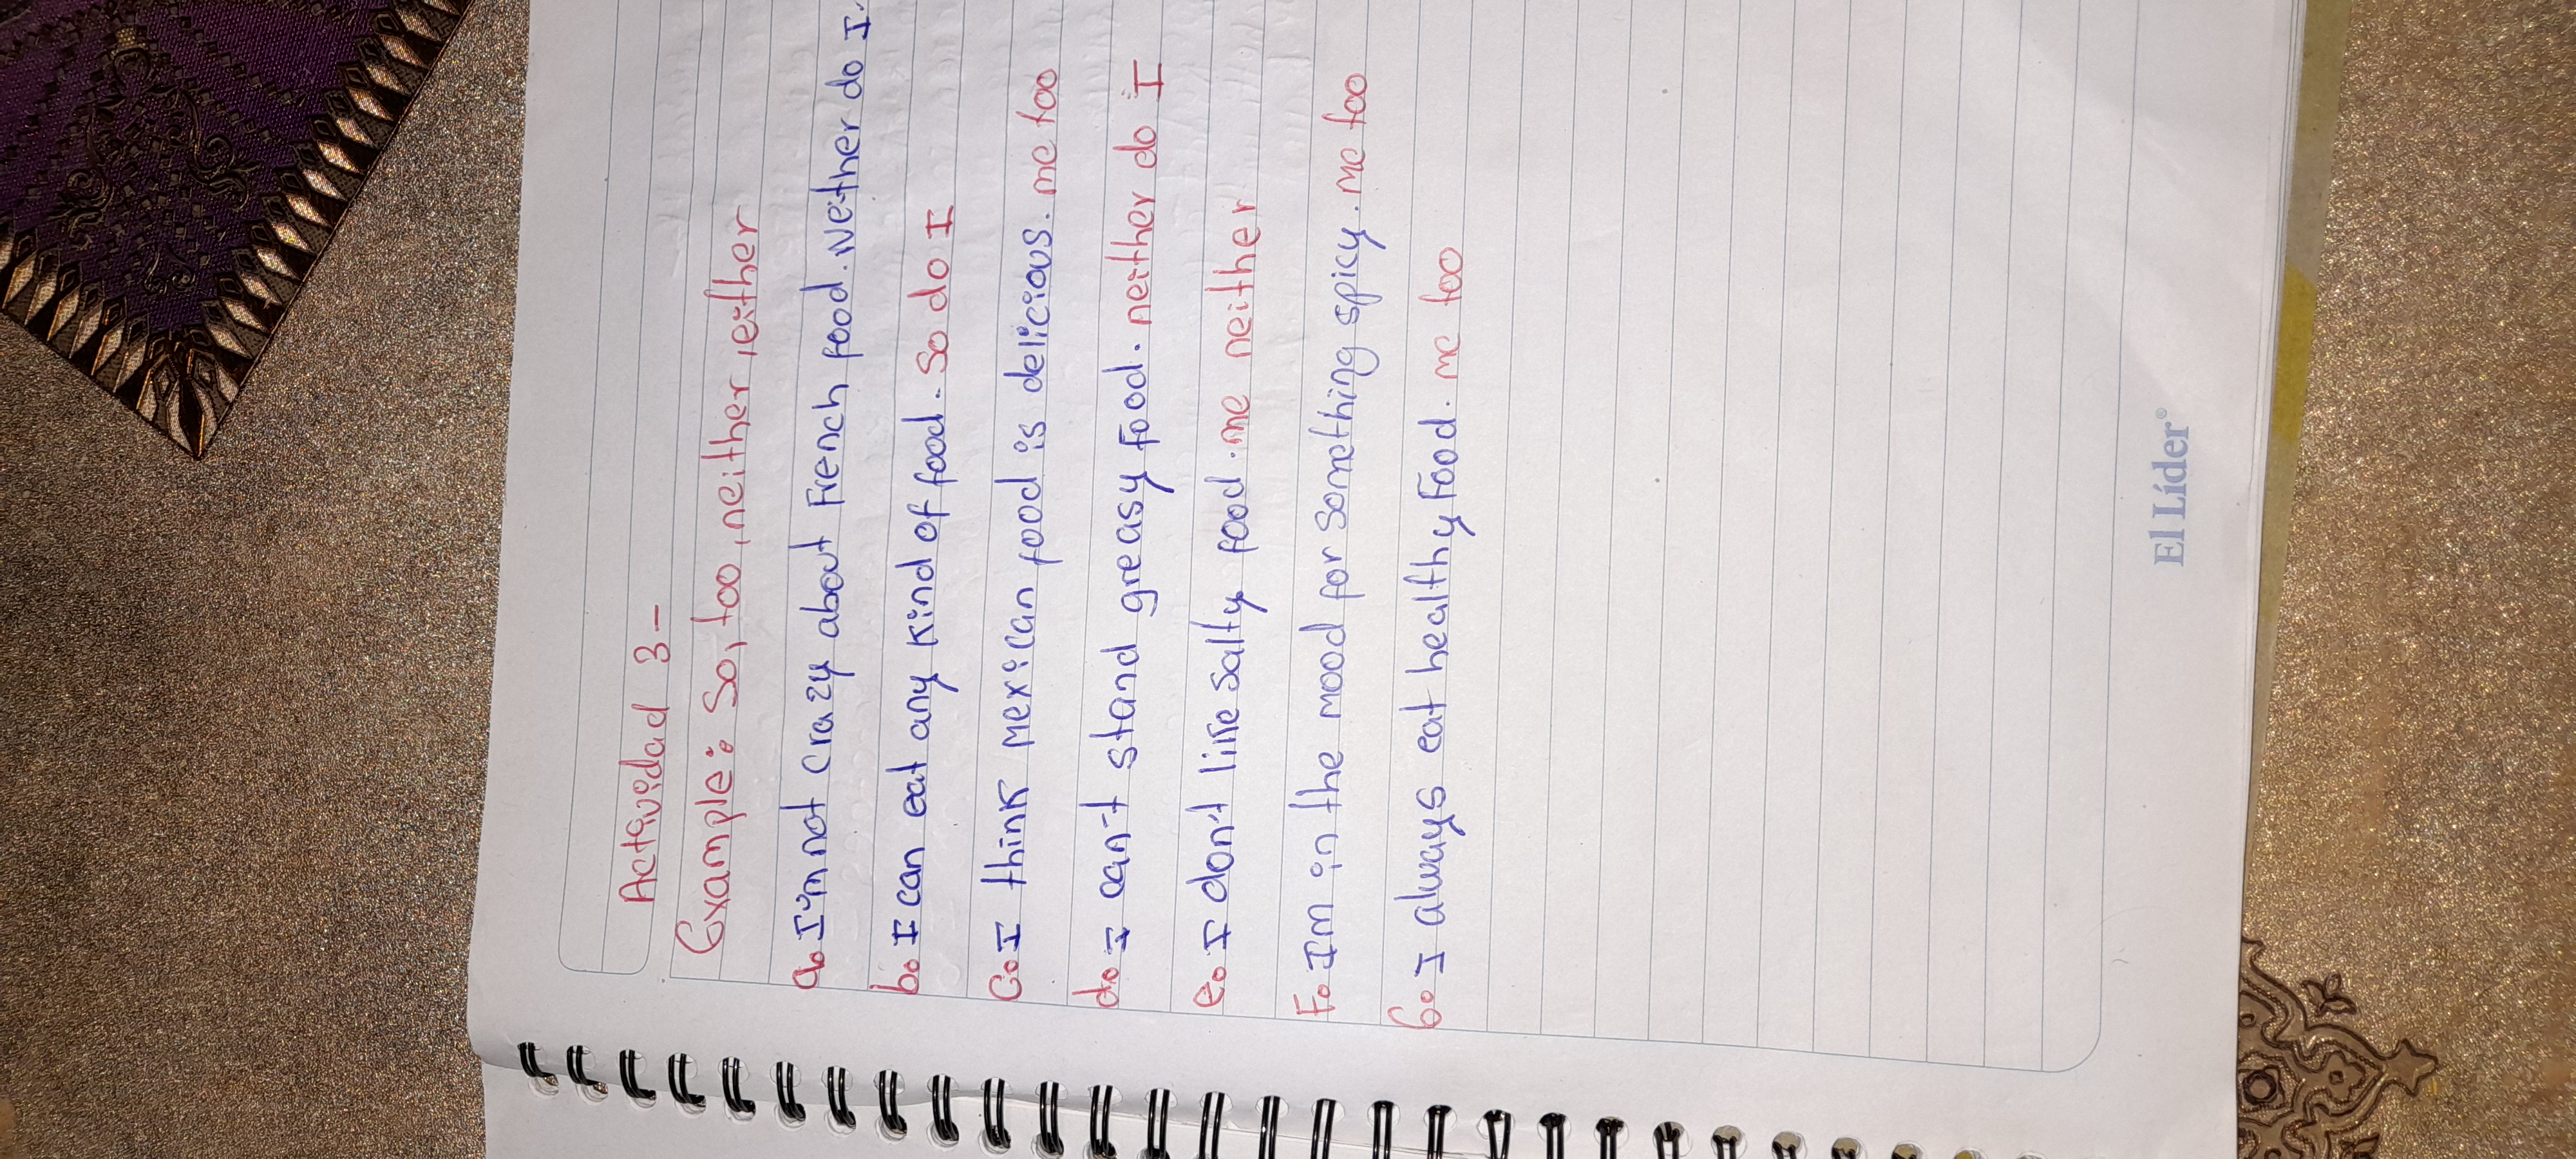 Actividad 3-
Example: So, too, neither, either
a. I'm not crazy about French food. Neither do I.
b. I can eat any kind of food. So do I
C. I think mexican food is delicious. me too
d. I can't stand greasy food. neither do I
e. I don't like salty food. me neither
F. Im in the mood for something spicy. me too
G. I always eat healthy Food. me too
El Líder®